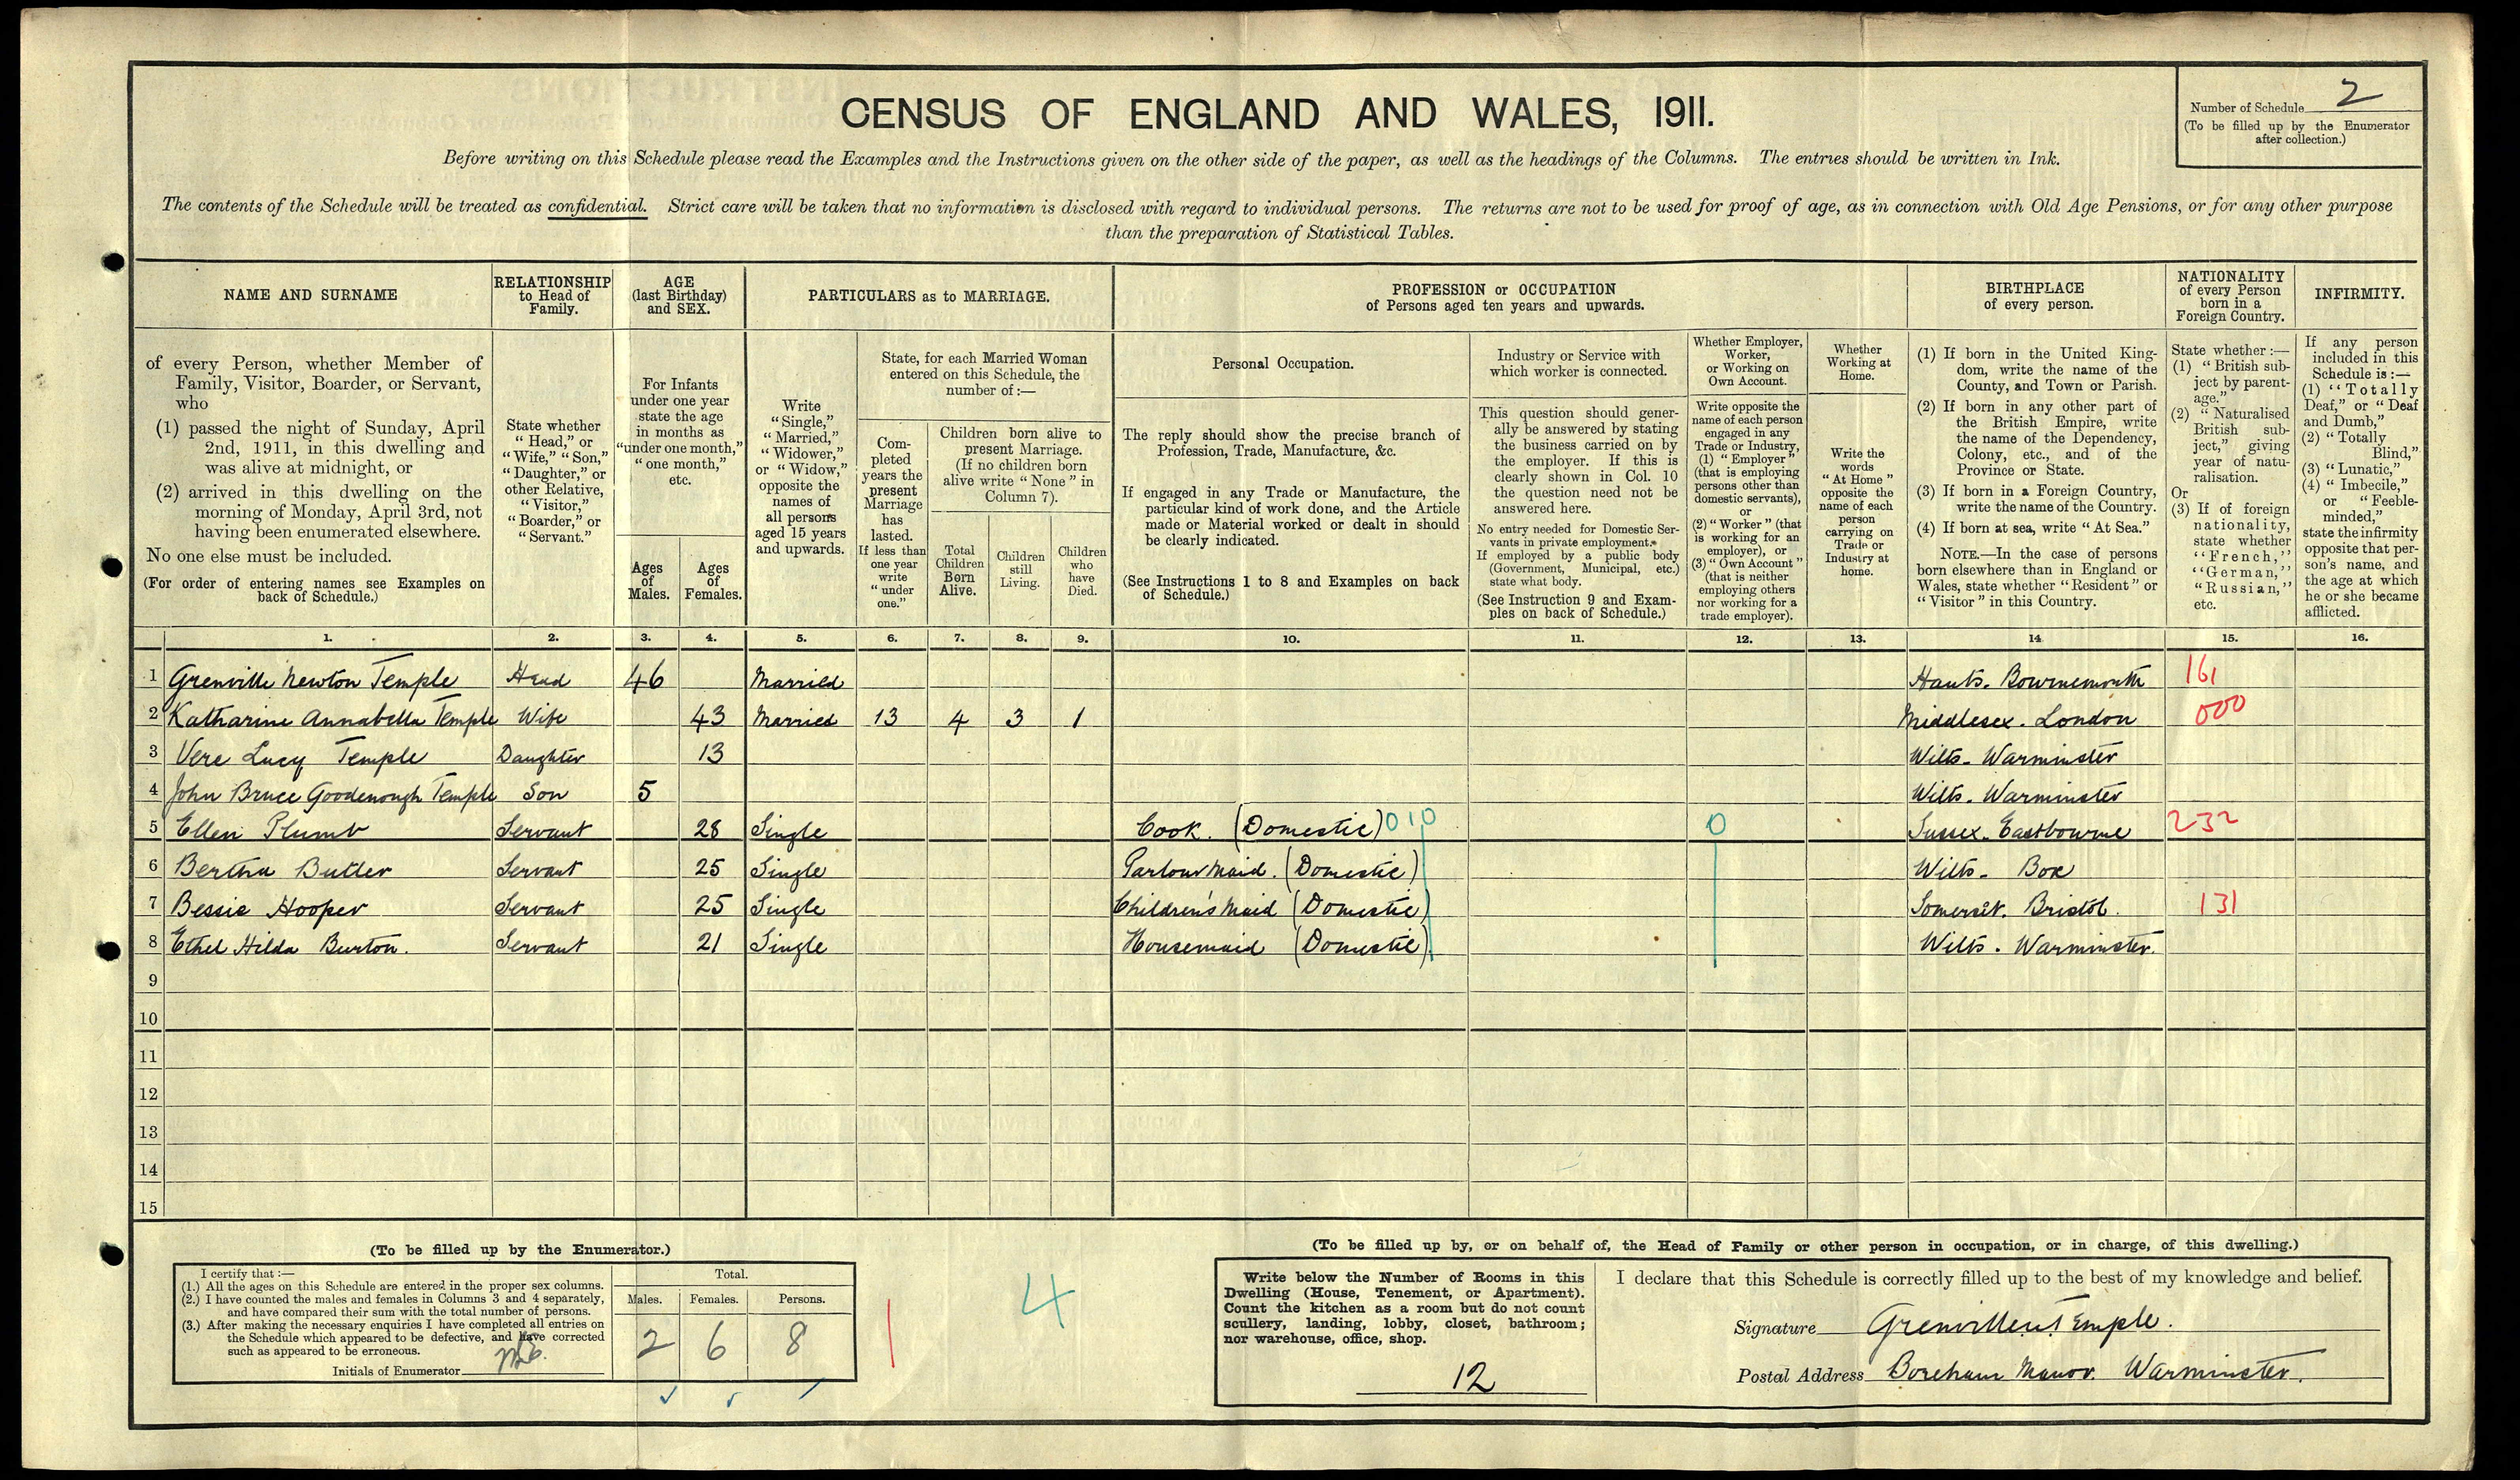 CENSUS OF ENGLAND AND WALES, 1911.
Number of Schedule 2
(To be filled up by the Enumerator
after collection.)
Before writing on this Schedule please read the Examples and the Instructions given on the other side of the paper, as well as the headings of the Columns. The entries should be written in Ink.
The contents of the Schedule will be treated as confidential. Strict care will be taken that no information is disclosed with regard to individual persons. The returns are not to be used for proof of age, as in connection with Old Age Pensions, or for any other purpose
than the preparation of Statistical Tables.
NAME AND SURNAME
of every Person, whether Member of
Family, Visitor, Boarder, or Servant,
who
(1) passed the night of Sunday, April
2nd, 1911, in this dwelling and
was alive at midnight, or
(2) arrived in this dwelling on the
morning of Monday, April 3rd, not
having been enumerated elsewhere.
No one else must be included.
(For order of entering names see Examples on
back of Schedule.)
RELATIONSHIP
to Head of
Family.
State whether
"Head," or
"Wife," "Son,"
"Daughter," or
other Relative,
"Visitor,"
"Boarder," or
"Servant."
AGE
(last Birthday)
and SEX.
For Infants
under one year
state the age
in months as
"under one month,"
"one month,"
etc.
Ages
of
Males.
Ages
of
Females.
PARTICULARS as to MARRIAGE.
Write
"Single,"
"Married,"
"Widower,"
or "Widow,"
opposite the
names of
all persons
aged 15 years
and upwards.
State, for each Married Woman
entered on this Schedule, the
number of :—
Com-
pleted
years the
present
Marriage
has
lasted.
If less than
one year
write
"under
one."
Children born alive to
present Marriage.
(If no children born
alive write "None" in
Column 7).
Total
Children
Born
Alive.
Children
still
Living.
Children
who
have
Died.
PROFESSION or OCCUPATION
of Persons aged ten years and upwards.
Personal Occupation.
The reply should show the precise branch of
Profession, Trade, Manufacture, &c.
If engaged in any Trade or Manufacture, the
particular kind of work done, and the Article
made or Material worked or dealt in should
be clearly indicated.
(See Instructions 1 to 8 and Examples on back
of Schedule.)
Industry or Service with
which worker is connected.
This question should gener-
ally be answered by stating
the business carried on by
the employer. If this is
clearly shown in Col. 10
the question need not be
answered here.
No entry needed for Domestic Ser-
vants in private employment.
If employed by a public body
(Government, Municipal, etc.)
state what body.
(See Instruction 9 and Exam-
ples on back of Schedule.)
Whether Employer,
Worker,
or Working on
Own Account.
Write opposite the
name of each person
engaged in any
Trade or Industry,
(1) "Employer"
(that is employing
persons other than
domestic servants),
or
(2) "Worker" (that
is working for an
employer), or
(3) "Own Account"
(that is neither
employing others
nor working for a
trade employer).
Whether
Working at
Home.
Write the
words
"At Home"
opposite the
name of each
person
carrying on
Trade or
Industry at
home.
BIRTHPLACE
of every person.
(1) If born in the United King-
dom, write the name of the
County, and Town or Parish.
(2) If born in any other part of
the British Empire, write
the name of the Dependency,
Colony, etc., and of the
Province or State.
(3) If born in a Foreign Country,
write the name of the Country.
(4) If born at sea, write "At Sea."
NOTE.—In the case of persons
born elsewhere than in England or
Wales, state whether "Resident" or
"Visitor" in this Country.
NATIONALITY
of every Person
born in a
Foreign Country.
State whether :—
(1) "British sub-
ject by parent-
age."
(2) "Naturalised
British sub-
ject," giving
year of natu-
ralisation.
Or
(3) If of foreign
nationality,
state whether
"French,"
"German,"
"Russian,"
etc.
INFIRMITY.
If any person
included in this
Schedule is :—
(1) "Totally
Deaf," or "Deaf
and Dumb,"
(2) "Totally
Blind,"
(3) "Lunatic,"
(4) "Imbecile,"
or "Feeble-
minded,"
state the infirmity
opposite that per-
son's name, and
the age at which
he or she became
afflicted.
1. 2. 3. 4. 5. 6. 7. 8. 9. 10. 11. 12. 13. 14 15. 16.
1 Grenville Newton Temple Head 46 Married Hants. Bournemouth 161
2 Katharine Annabella Temple Wife 43 Married 13 4 3 1 Middlesex. London 000
3 Vere Lucy Temple Daughter 13 Wilts. Warminster
4 John Bruce Goodenough Temple Son 5 Wilts. Warminster
5 Ellen Plumb Servant 28 Single Cook. (Domestic) 010 0 Sussex. Eastbourne 232
6 Bertha Butler Servant 25 Single Parlour Maid. (Domestic) Wilts. Box
7 Bessie Hooper Servant 25 Single Children's Maid (Domestic) Somerset. Bristol. 131
8 Ethel Hilda Burton. Servant 21 Single Housemaid (Domestic). Wilts. Warminster.
9
10
11
12
13
14
15
(To be filled up by the Enumerator.)
I certify that :—
(1.) All the ages on this Schedule are entered in the proper sex columns.
(2.) I have counted the males and females in Columns 3 and 4 separately,
and have compared their sum with the total number of persons.
(3.) After making the necessary enquiries I have completed all entries on
the Schedule which appeared to be defective, and have corrected
such as appeared to be erroneous.
Initials of Enumerator
Total.
Males. Females. Persons.
2 6 8
1
4
(To be filled up by, or on behalf of, the Head of Family or other person in occupation, or in charge, of this dwelling.)
Write below the Number of Rooms in this
Dwelling (House, Tenement, or Apartment).
Count the kitchen as a room but do not count
scullery, landing, lobby, closet, bathroom;
nor warehouse, office, shop.
12
I declare that this Schedule is correctly filled up to the best of my knowledge and belief.
Signature Grenville N. Temple.
Postal Address Boreham Manor. Warminster.